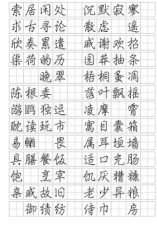 索居闲处 沉默寂寥
求古寻论 散虑 遥
欣奏累遣 戚谢欢招
渠荷的历 园莽抽条
晚翠 梧桐蚤凋
陈根委 落叶飘摇
游鹍独运 凌摩 霄
耽读玩市 寓目囊箱
易 畏 属耳垣墙
具膳餐饭 适口充肠
饱 烹宰 饥厌糟糠
亲戚故旧 老少异粮
御绩纺 侍巾 房